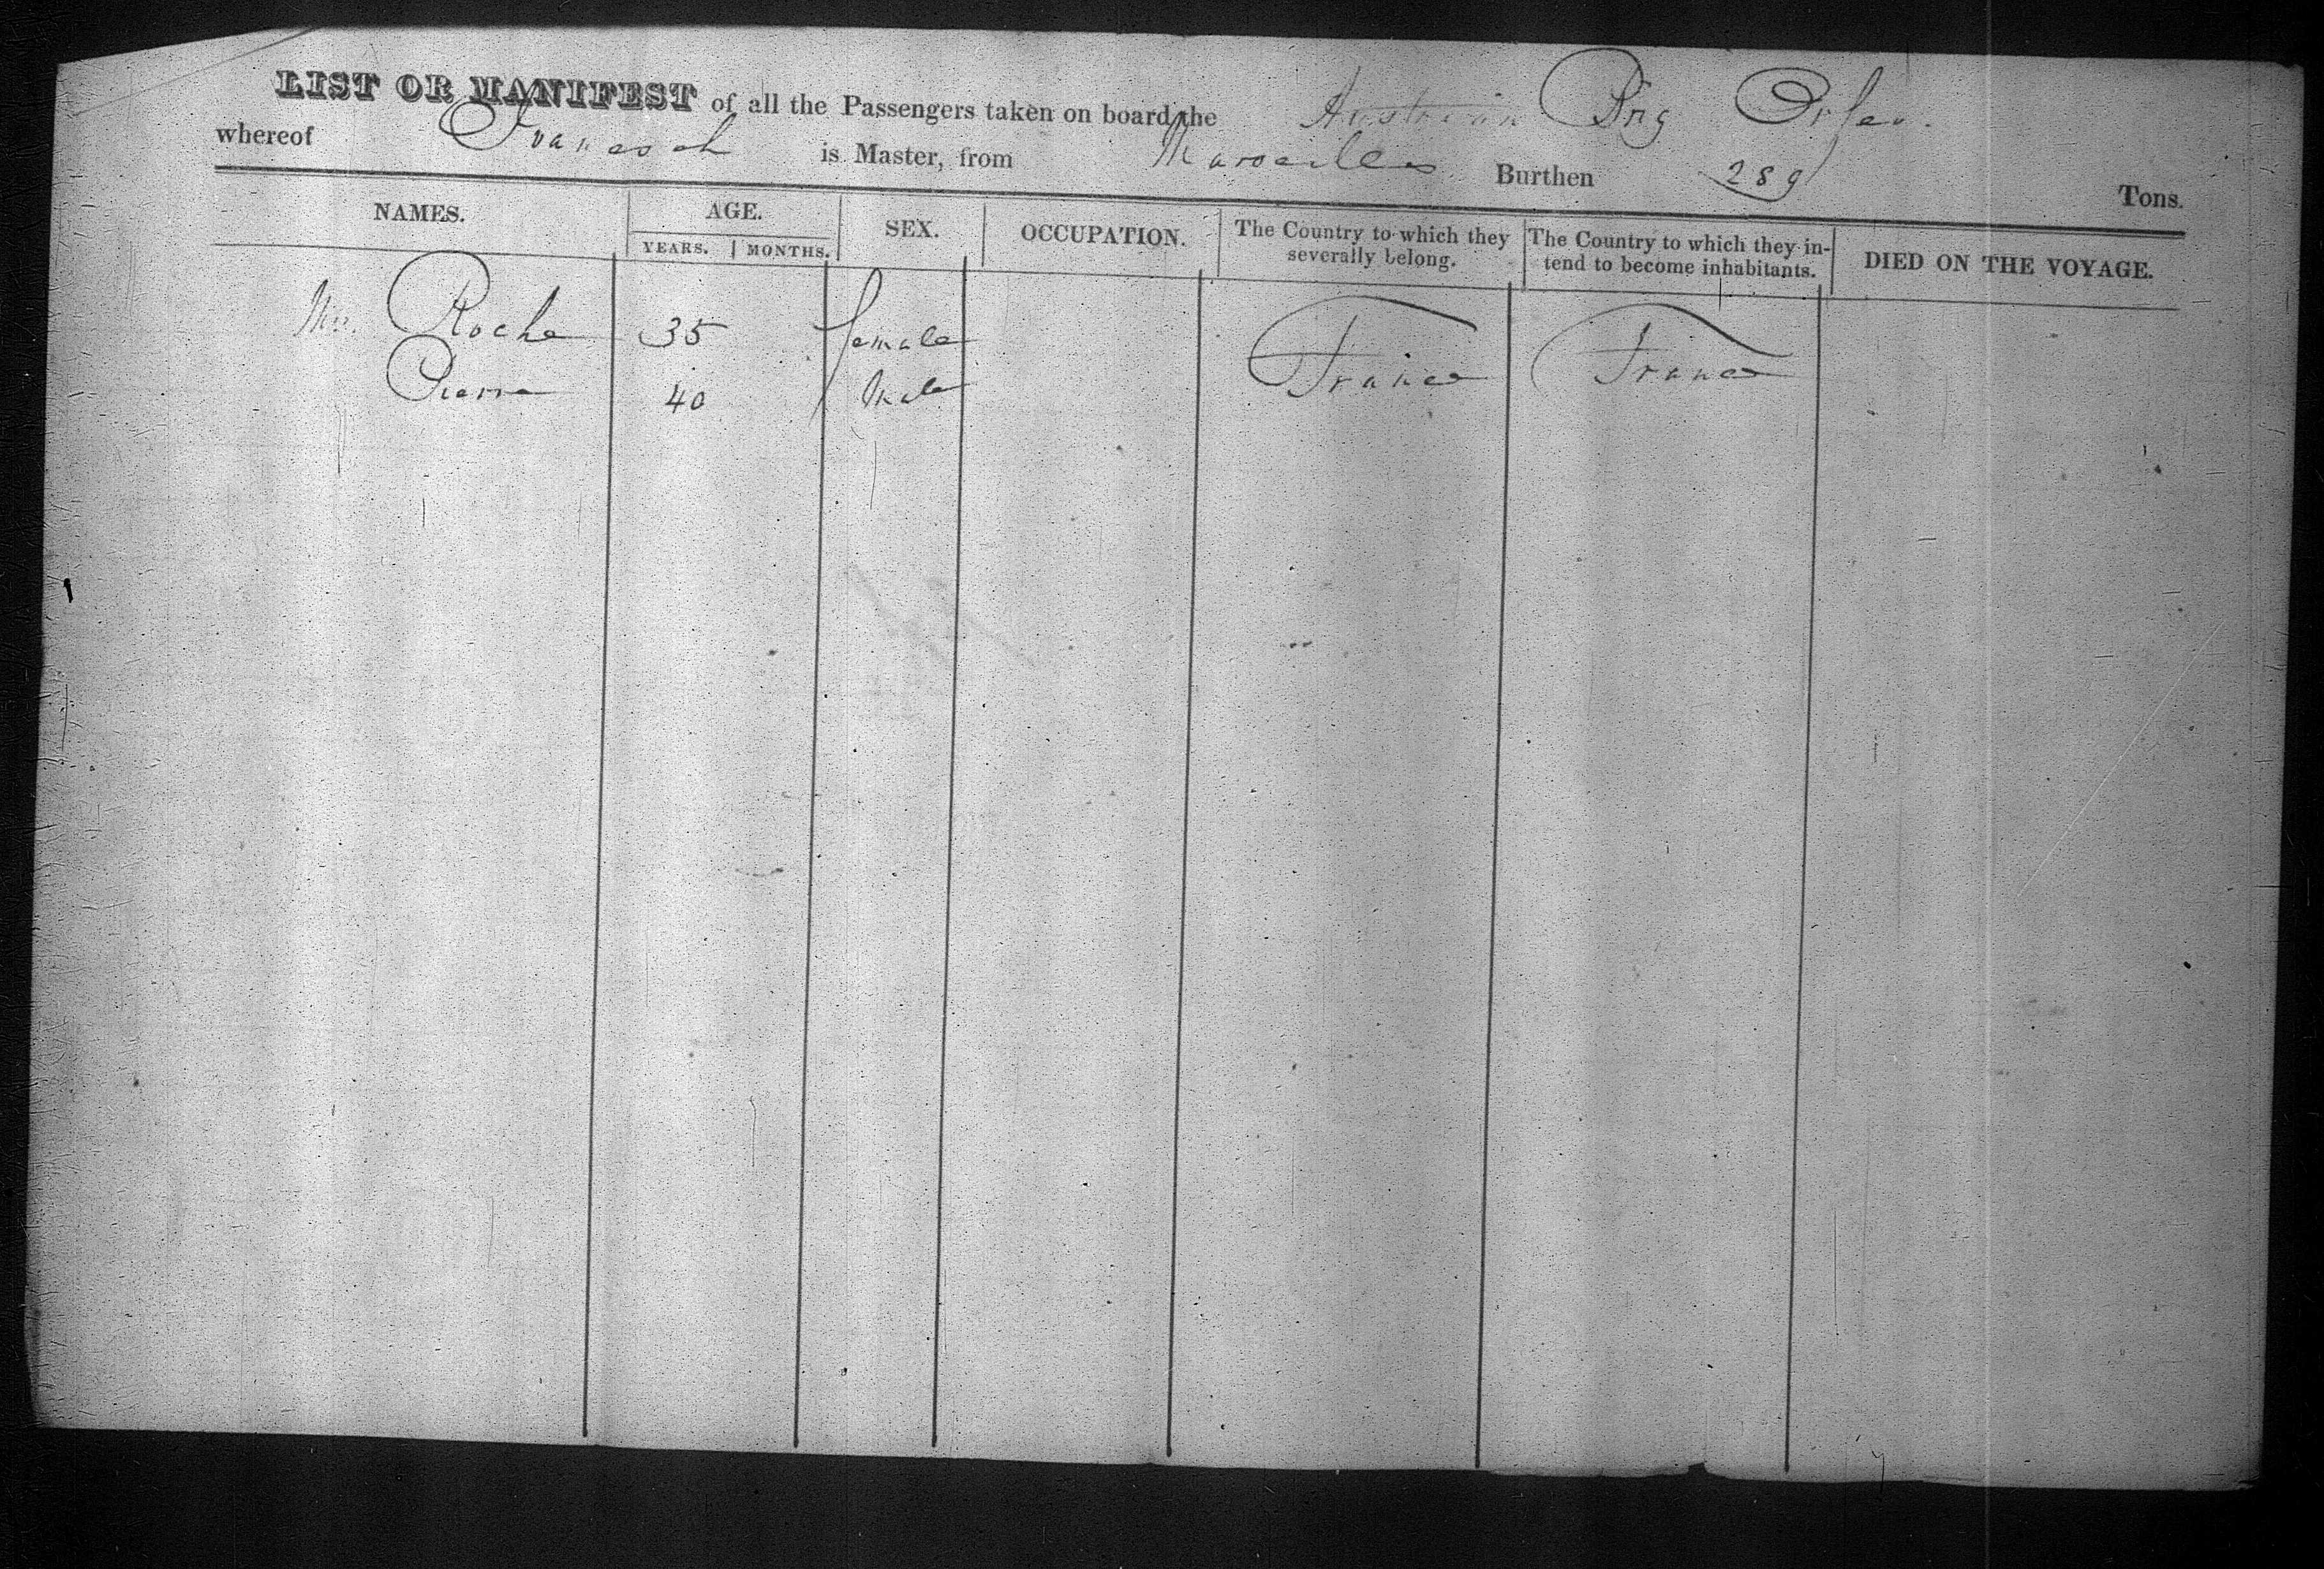 LIST OR MANIFEST of all the Passengers taken on board the Austrian Brig Orfeo.
whereof Ivancich is Master, from Marseilles Burthen 289 Tons.
NAMES. AGE. SEX. OCCUPATION. The Country to which they severally belong. The Country to which they intend to become inhabitants. DIED ON THE VOYAGE.
YEARS. MONTHS.
Mrs. Roche 35 female
Pierre 40 Male France France